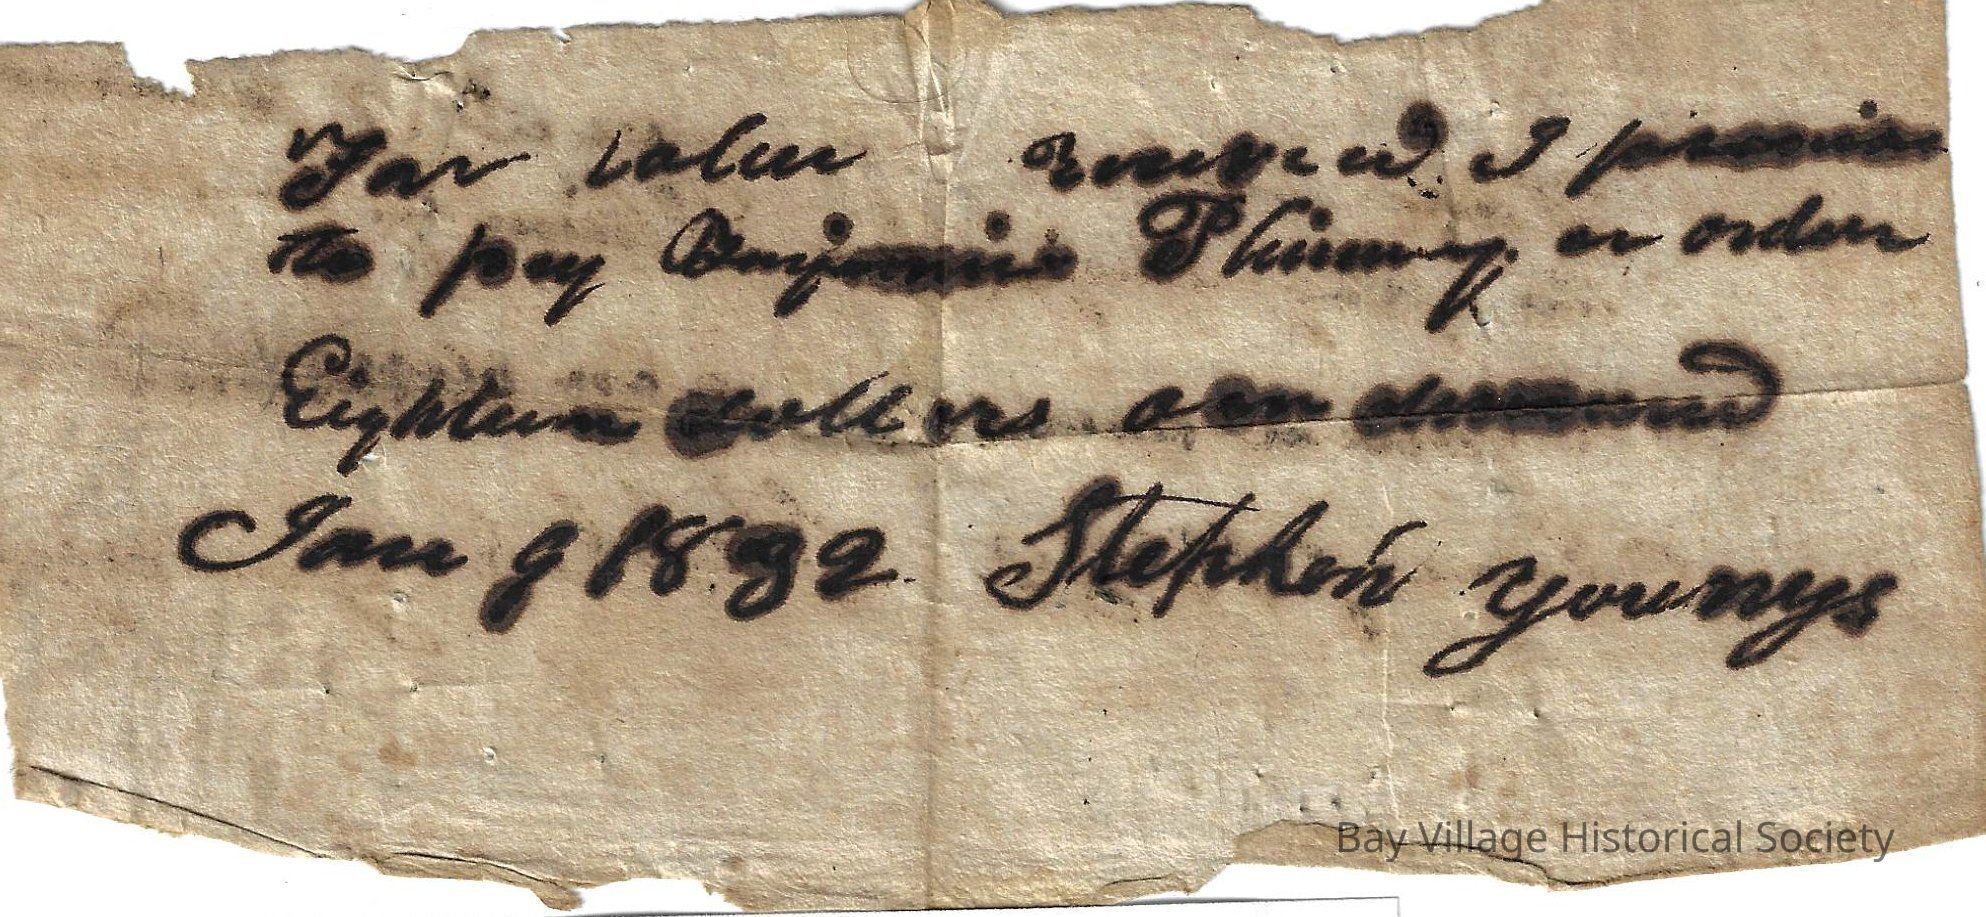 For value received I promise
to pay Benjamin Phinney or order
Eighteen dollars on demand
Jan 9 1832 Stephen Youngs
Bay Village Historical Society